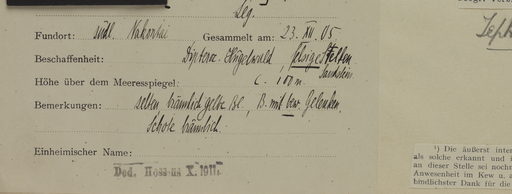 Leg.
Fundort: südl. Nakontai Gesammelt am: 23. XII. 05
Beschaffenheit: Dipteroc. Hügelwald, felsige Stellen
Sandstein
Höhe über dem Meeresspiegel: c. 100 m
Bemerkungen: selten bräunlich gelbe Bl., B. mit bew. Gelenken.
Schote bräunlich.
Einheimischer Name:
Ded. Hosseus X. 1911
¹) Die äußerst inte
als solche erkannt und i
an dieser Stelle sei noch
Anwesenheit im Kew u. a
bindlichster Dank für die